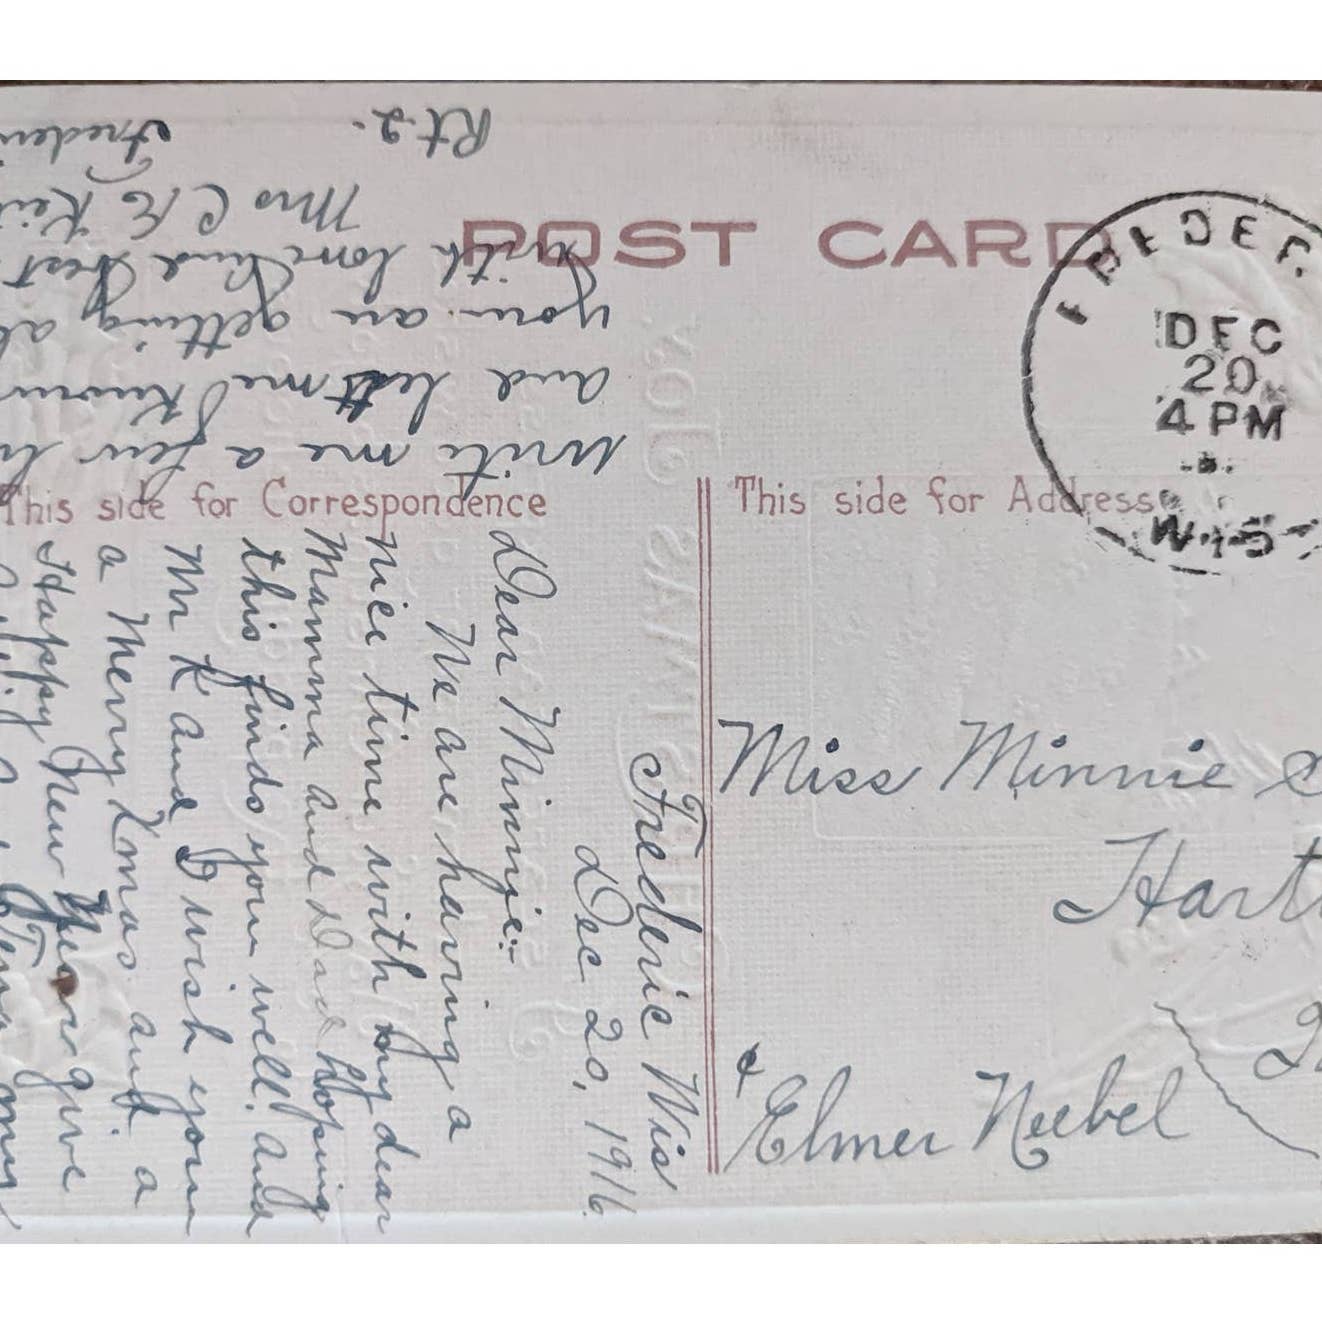 POST CARD
FREDER
DEC
20
4 PM
WIS
This side for Correspondence
This side for Address
Frederic Wis
Dec 20, 1916
Dear Minnie:
We are having a
nice time with my dear
Mamma and Dad Hoping
this finds you well. and
Mr K and I wish you
a Merry Xmas and a
Happy New Year give
my
write me a few
and let me know
you are getting
with love and best
Mrs C E
Rt. 2.
Miss Minnie
Hart
& Elmer Neebel